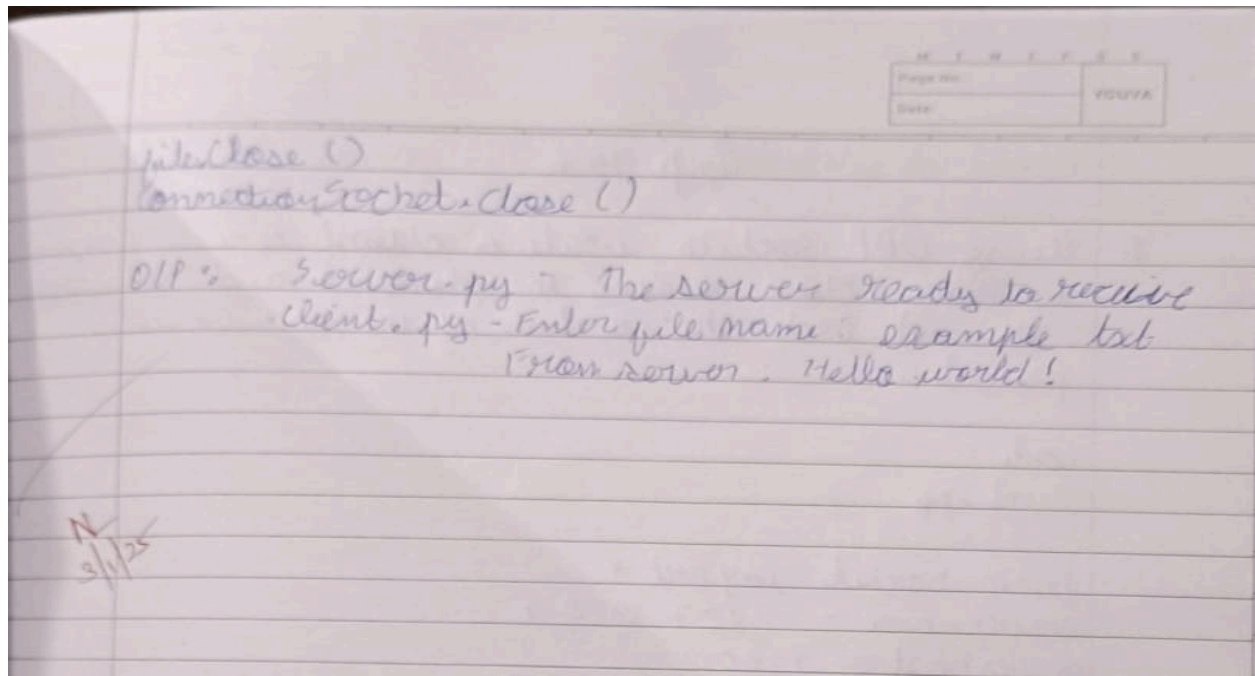 M T W T F S S
Page No:
YOUVA
Date:
file.Close ()
ConnectionSocket.Close ()
O/P: Server.py - The server ready to receive
client.py - Enter file name: example txt
From server: Hello world!
N
3/1/25